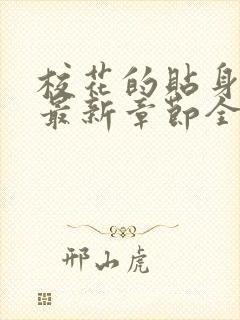 校花的贴身
最新章节全
邢山虎